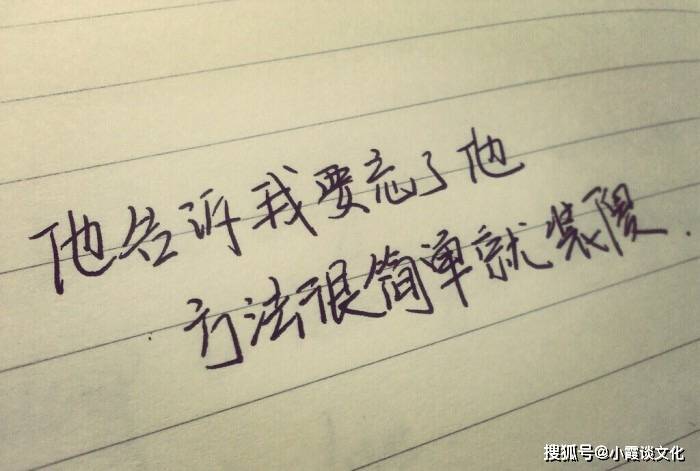 他告诉我要忘了他
方法很简单就装傻.
搜狐号@小霞谈文化